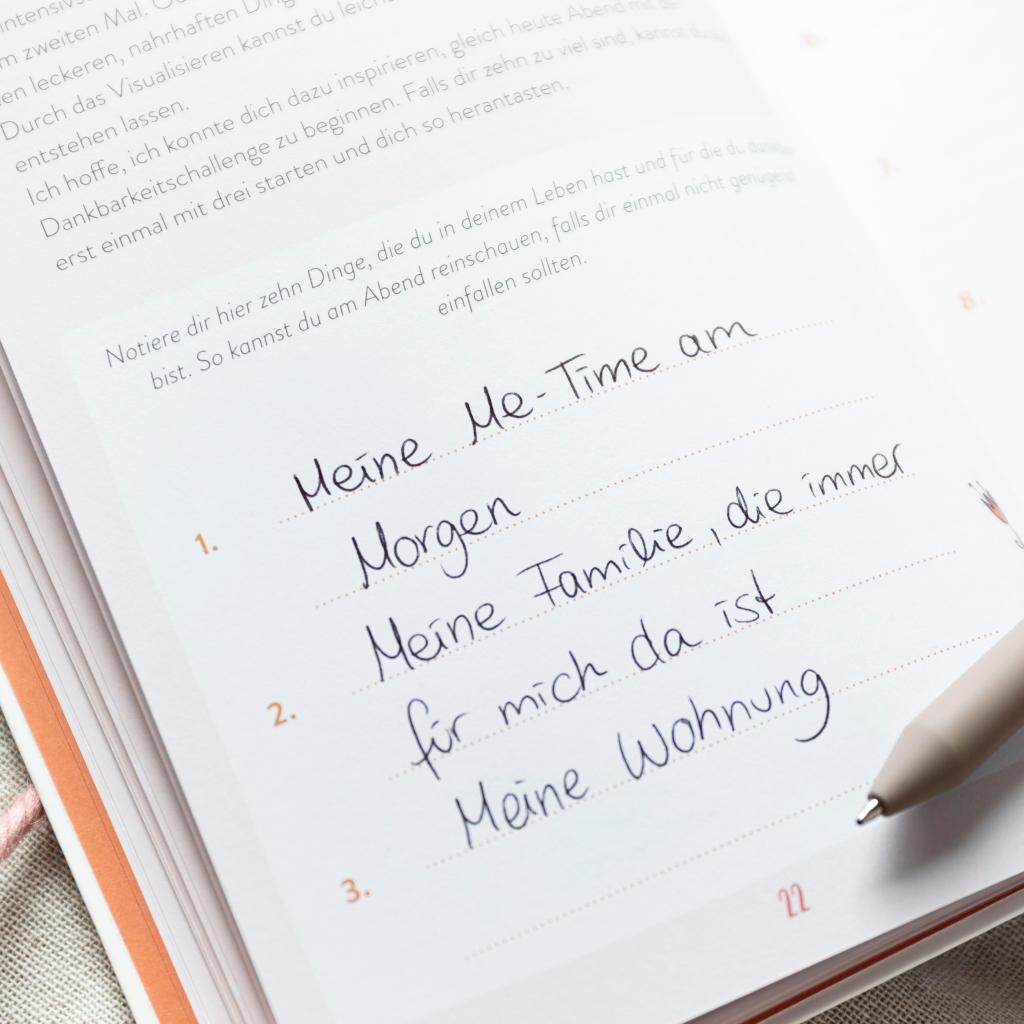 m zweiten Mal.
leckeren, nahrhaften
Durch das Visualisieren kannst du leicht
entstehen lassen.
Ich hoffe, ich konnte dich dazu inspirieren, gleich heute Abend mit der
Dankbarkeitschallenge zu beginnen. Falls dir zehn zu viel sind, kannst du
erst einmal mit drei starten und dich so herantasten.
Notiere dir hier zehn Dinge, die du in deinem Leben hast und für die du dankbar
bist. So kannst du am Abend reinschauen, falls dir einmal nicht genügend
einfallen sollten.
1. Meine Me-Time am
Morgen
2. Meine Familie, die immer
für mich da ist
3. Meine Wohnung
22
7.
8.